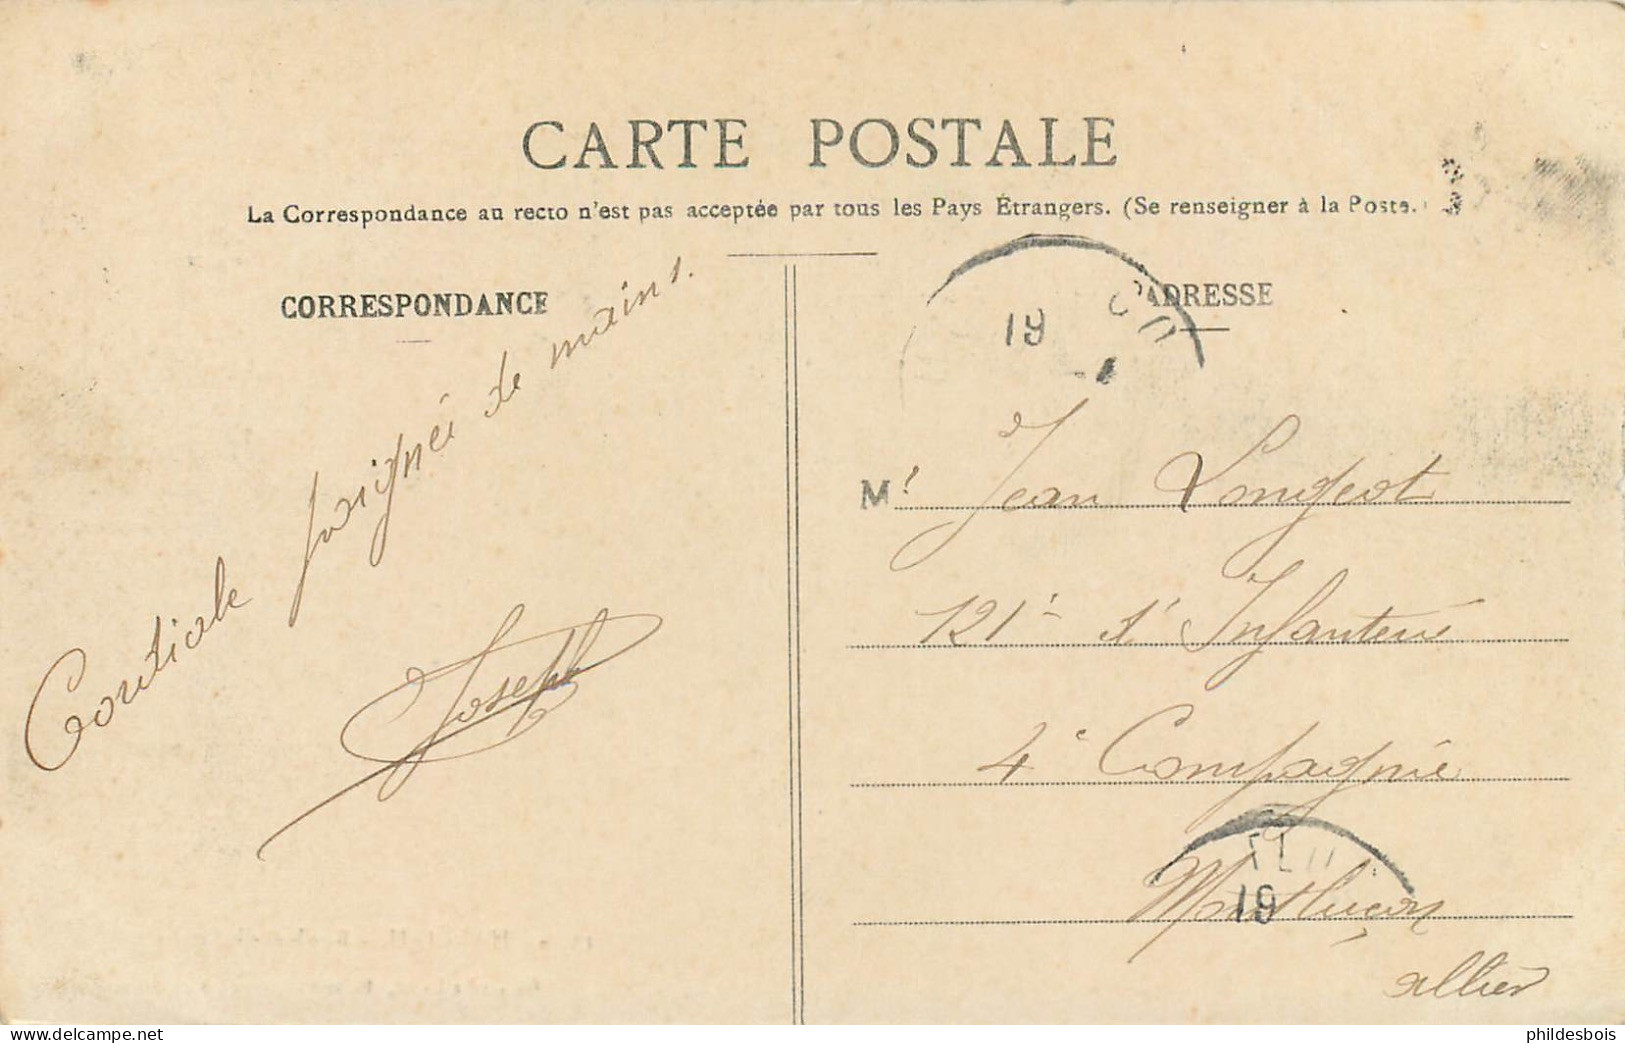 CARTE POSTALE
La Correspondance au recto n'est pas acceptée par tous les Pays Étrangers. (Se renseigner à la Poste.
CORRESPONDANCE
ADRESSE
Cordiale poignée de mains.
Joseph
19
Mr Jean Longeot
121e d'Infanterie
4e Compagnie
19
Montluçon
Allier
www.delcampe.net
phildesbois